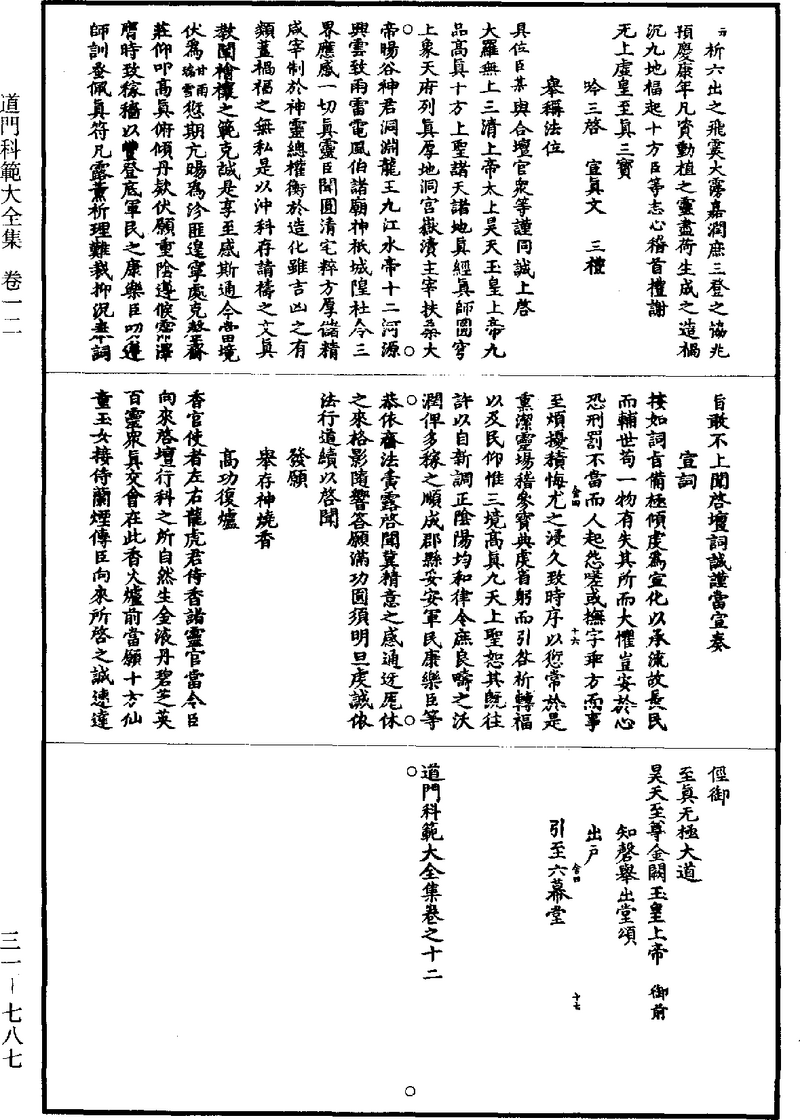 祈六出之飛霙大霶嘉潤庶三登之協兆
預慶康年凡資動植之靈盡荷生成之造禍
沉九地福起十方臣等志心稽首禮謝
无上虛皇至真三寶
吟三啓　宣真文　三禮
舉稱法位
具位臣某與合壇官衆等謹同誠上啓
大羅無上三清上帝太上昊天玉皇上帝九
品高真十方上聖諸天諸地真經真師圓穹
上象天府列真厚地洞宮嶽瀆主宰扶桑大
帝暘谷神君洞淵龍王九江水帝十二河源
興雲致雨雷電風伯諸廟神祇城隍社令三
界應感一切真靈臣聞圓清宅粹方厚儲精
咸宰制於神靈總權衡於造化雖吉凶之有
類蓋禍福之無私是以沖科存請禱之文真
教闡禬禳之範克誠是享至感斯通今當境
伏為甘雨瑞雪愆期亢暘為沴匪遑寧處克整齋
莊仰叩高真俯傾丹欵伏願重陰遵候霈澤
膺時致稼穡以豐登底軍民之康樂臣叨遵
師訓忝佩真符凡露薰祈理難裁抑況奉詞
旨敢不上聞啓壇詞誠謹當宣奏
宣詞
按如詞旨備極傾虔為宣化以承流故長民
而輔世苟一物有失其所而大懼豈安於心
恐刑罰不當而人起怨嗟或撫字乖方而事
至煩擾積悔尤之浸久致時序以愆常於是
熏潔靈場稽參寶典虔省躬而引咎祈轉福
以及民仰惟三境高真九天上聖恕其既往
許以自新調正陰陽均和律令庶良疇之沃
潤俾多稼之順成郡縣妥安軍民康樂臣等
恭依齋法書露啓聞冀精意之感通迓厖休
之來格影隨響答願滿功圓須明旦虔誠依
法行道續以啓聞
發願
舉存神燒香
高功復爐
香官使者左右龍虎君侍香諸靈官當令臣
向來啓壇行科之所自然生金液丹碧芝英
百靈衆真交會在此香火爐前當願十方仙
童玉女接侍蘭煙傳臣向來所啓之誠速達
徑御
至真无極大道
昊天至尊金闕玉皇上帝　御前
知磬舉出堂頌
出戶
引至六幕堂
道門科範大全集卷之十二
十六
十七
道門科範大全集　卷一二
三一－七八七